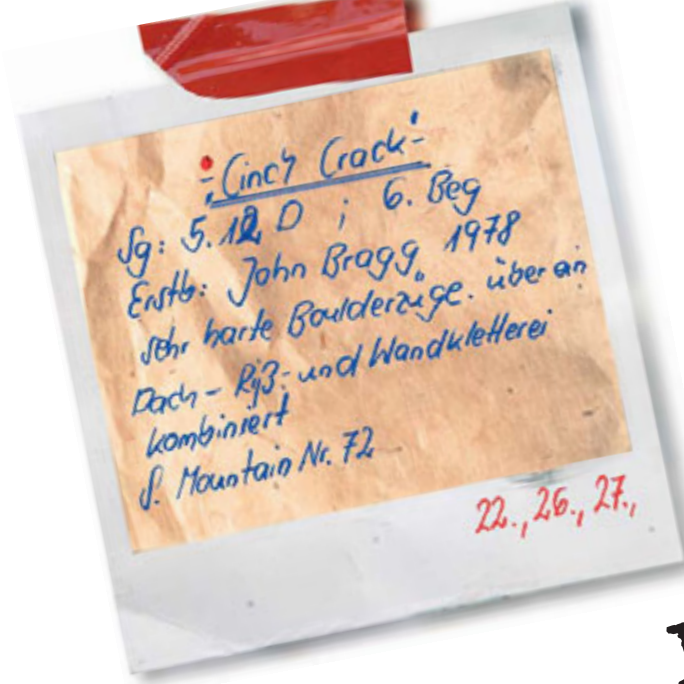 -„Cinch Crack"-
Sg: 5.12 D ; 6. Beg
Erstb: John Bragg 1978
sehr harte Boulderzüge. über ein
Dach - Riß- und Wandkletterei
kombiniert
S. Mountain Nr. 72
22., 26., 27.,